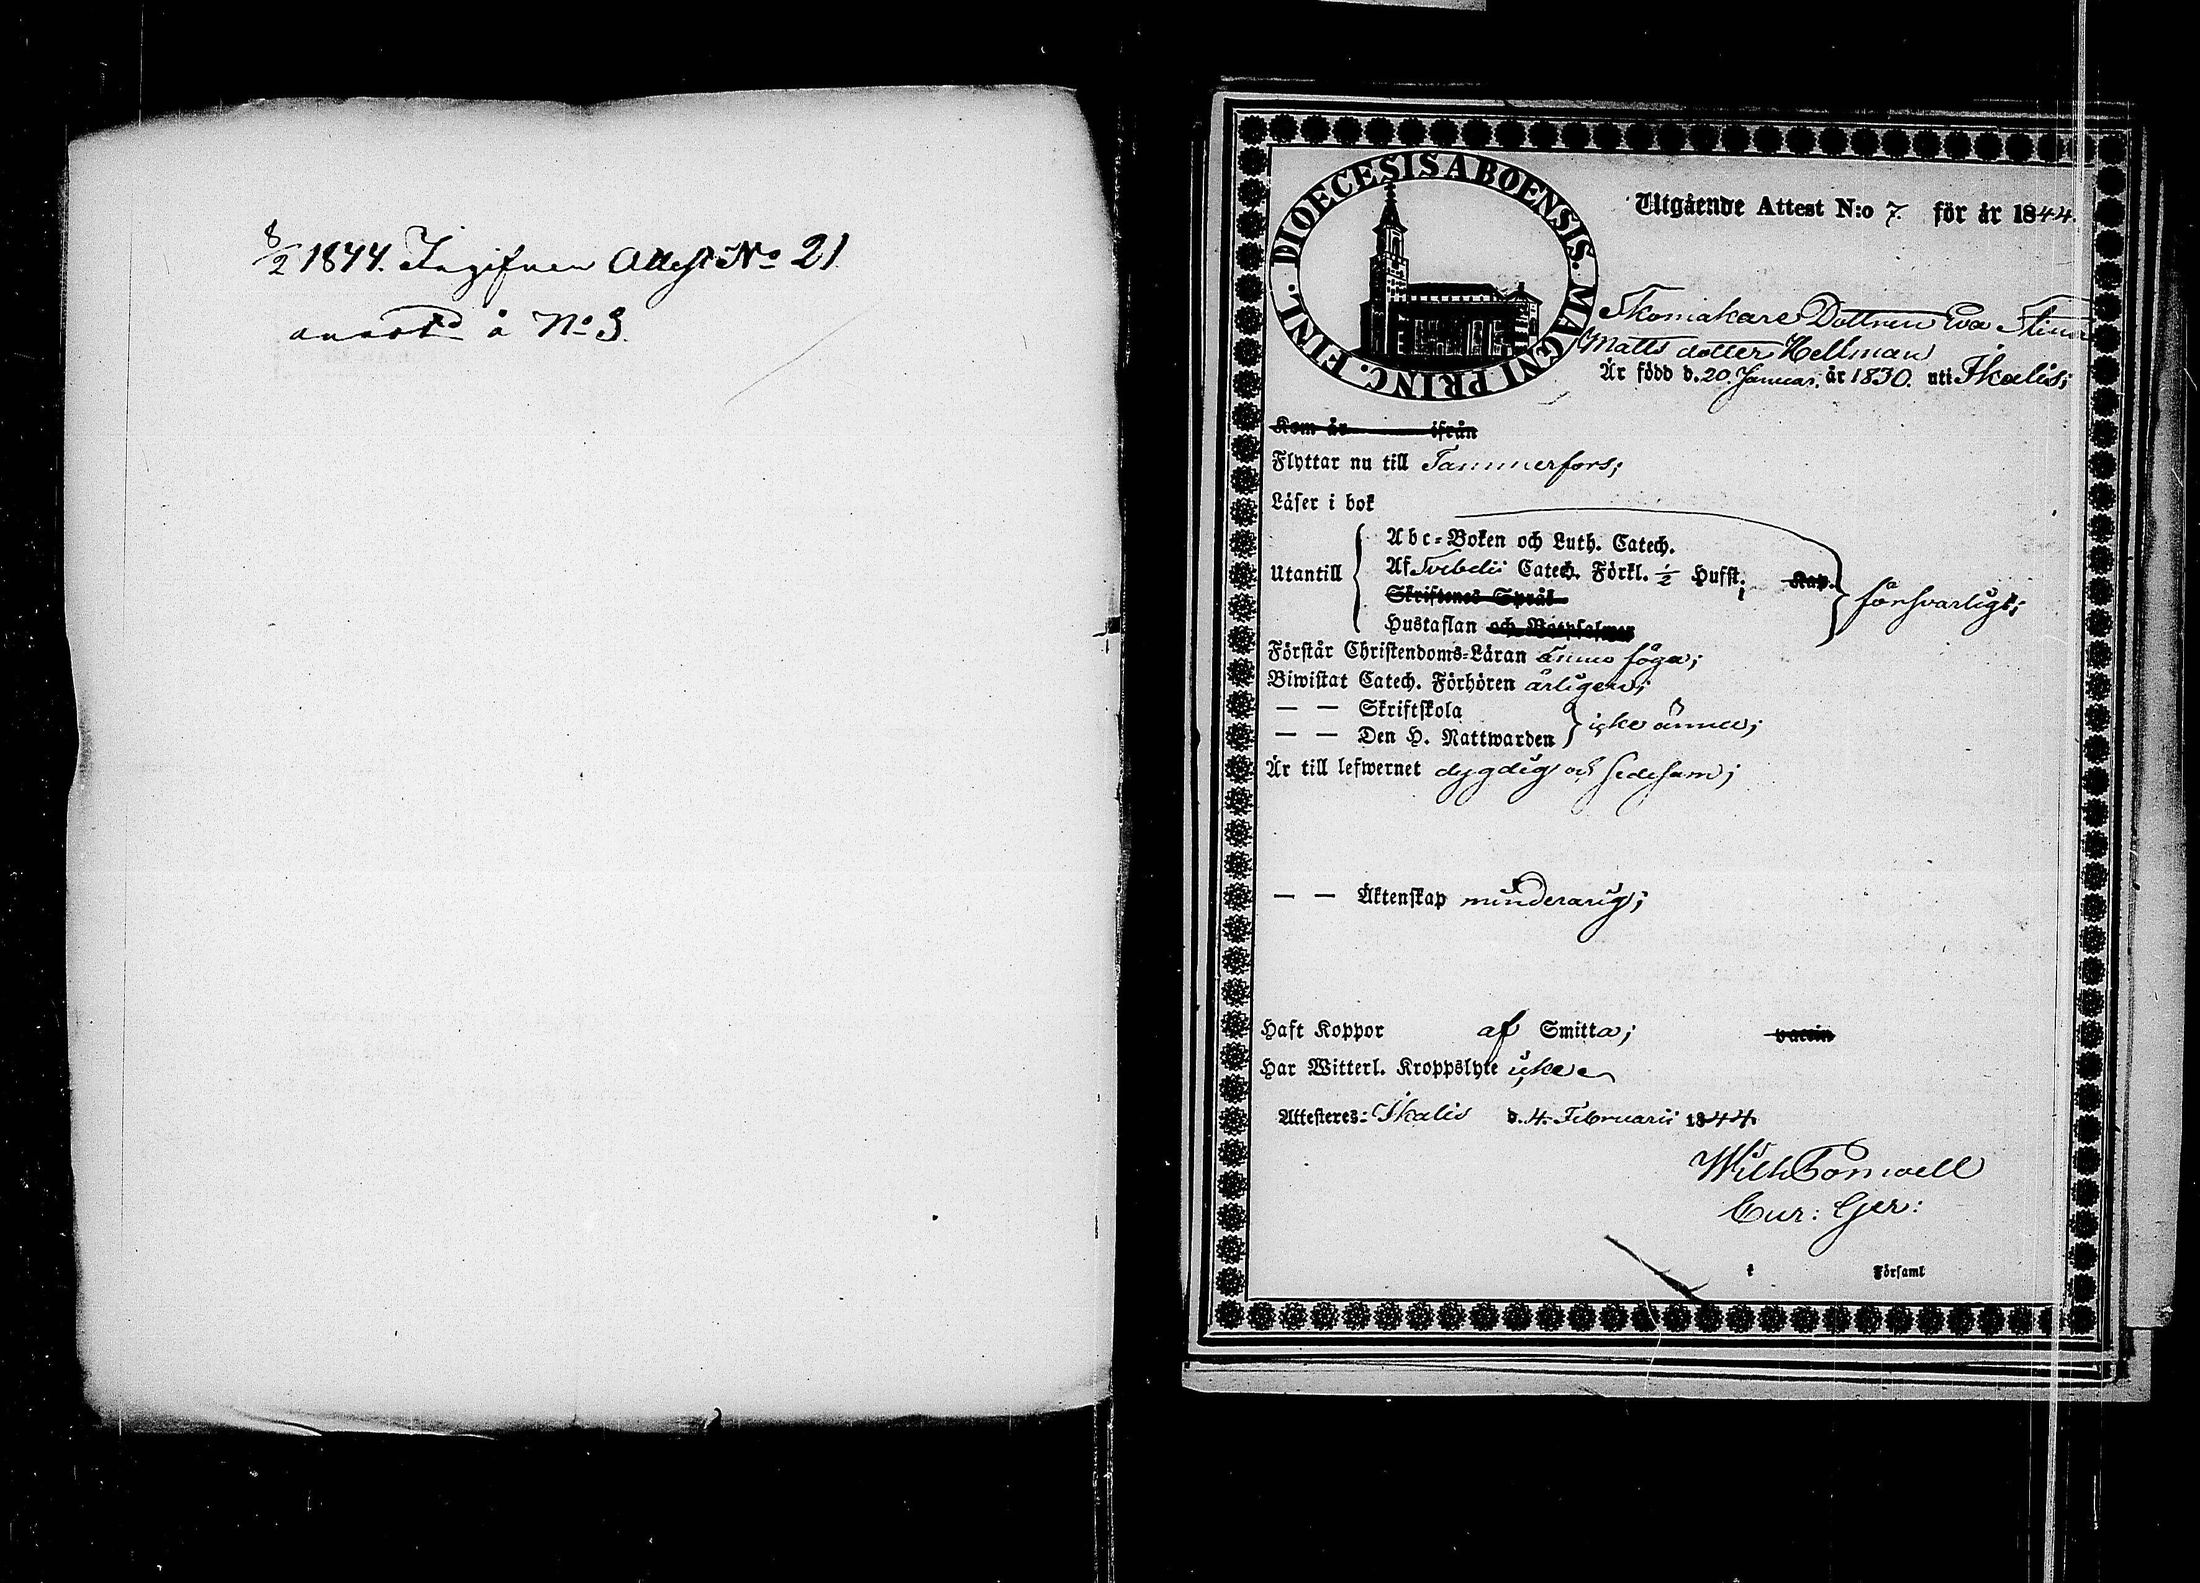 8/2 1844. Ingifven Attest No 21
å No 3.
DIOECESIS ABOENSIS. MAGNI PRINC. FINL.
Utgående Attest N:o 7. för år 1844.
Skomakare Dottren Eva Stina
Matts dotter Hellman
Är född d. 20. Januar. år 1830. uti Ikalis;
Kom år ifrån
Flyttar nu till Tammerfors;
Läser i bok
Abc-Boken och Luth. Catech.
Utantill Af Svebelii Catech. Förkl. 1/2 Hufst; Kap. försvarligt;
Skriftenes Språk
Hustaflan och Botpsalmer
Förstår Christendoms-Läran ännu föga;
Biwistat Catech. Förhören årligen;
— — Skriftskola
— — Den H. Nattwarden icke ännu;
Är till lefwernet dygdig och sedesam;
— — Äktenskap minderårig;
Haft Koppor af Smitta; vaccin
Har Witterl. Kroppslyte icke
Attesteres: Ikalis d. 4. Februarii 1844.
Wilh
Cur: Ger:
i Församl